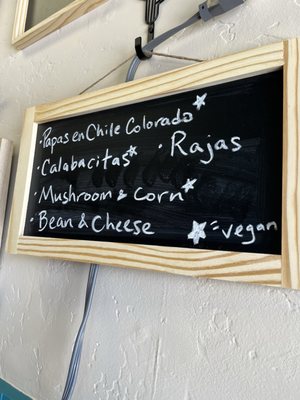 • Papas en Chile Colorado ☆
• Calabacitas ☆
• Rajas
• Mushroom & Corn ☆
• Bean & Cheese
☆ = vegan